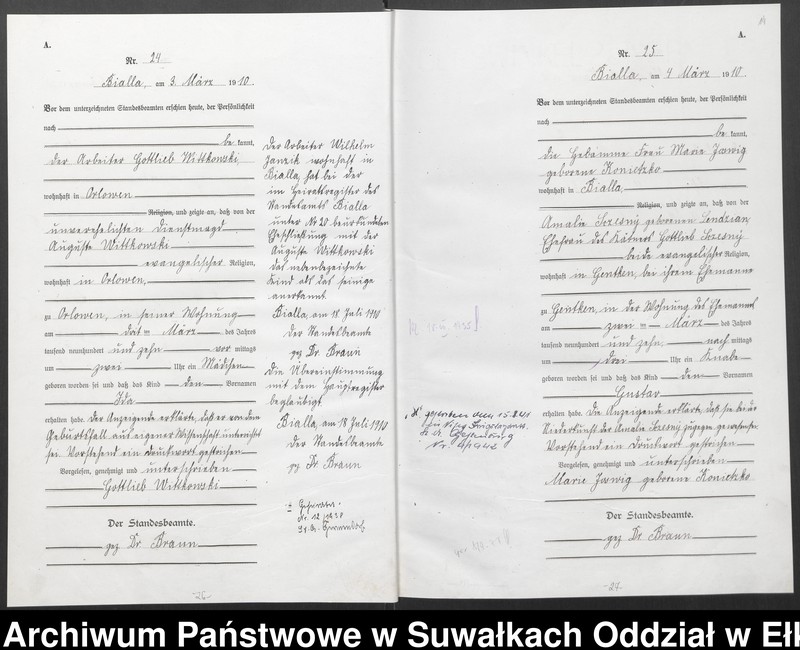 A.
Nr. 24
Bialla, am 3. März 1910.
Vor dem unterzeichneten Standesbeamten erschien heute, der Persönlichkeit
nach
be kannt,
der Arbeiter Gottlieb Wittkowski
wohnhaft in Orlowen
Religion, und zeigte an, daß von der
unverehelichten Dienstmagd
Auguste Wittkowski
evangelischer Religion,
wohnhaft in Orlowen,
zu Orlowen, in seiner Wohnung
am März des Jahres
tausend neunhundert und zehn vor mittags
um zwei Uhr ein Mädchen
geboren worden sei und daß das Kind den Vornamen
Ida
erhalten habe. Der Anzeigende erklärte, daß er von dem
Geburtsfall aus eigener Wissenschaft unterrichtet
sei. Vorstehend ein Druckwort gestrichen
Vorgelesen, genehmigt und unterschrieben
Gottlieb Wittkowski
Der Standesbeamte.
gez Dr. Braun
Der Arbeiter Wilhelm
wohnhaft in
Bialla, hat bei der
im Heiratsregister des
Standesamts Bialla
unter No 20 beurkundeten
Eheschließung mit der
Auguste Wittkowski
das nebenbezeichnete
Kind als das seinige
anerkannt
Bialla, am 18 Juli 1910
Der Standesbeamte
gez Dr. Braun
Die Übereinstimmung
mit dem Hauptregister
beglaubigt
Bialla, am 18 Juli 1910
Der Standesbeamte
gez Dr. Braun
-26-
A.
Nr. 25
Bialla, am 4 März 1910.
Vor dem unterzeichneten Standesbeamten erschien heute, der Persönlichkeit
nach
be kannt,
die Hebamme Frau Marie
geborene Konietzko
wohnhaft in Bialla
Religion, und zeigte an, daß von der
Amalie geborenen
Ehefrau des Kätners Gottlieb
beide evangelischer Religion,
wohnhaft in Gentken, bei ihrem Ehemanne
zu Gentken, in der Wohnung des Ehemannes
am zwei März des Jahres
tausend neunhundert und zehn nach mittags
um drei Uhr ein Knabe
geboren worden sei und daß das Kind den Vornamen
Gustav
erhalten habe. Die Anzeigende erklärte, daß sie bei der
Niederkunft der Amalie zugegen gewesen sei.
Vorstehend ein Druckwort gestrichen
Vorgelesen, genehmigt und unterschrieben
Marie geborene Konietzko
Der Standesbeamte.
gez Dr. Braun
-27-
Archiwum Państwowe w Suwałkach Oddział w Ełk